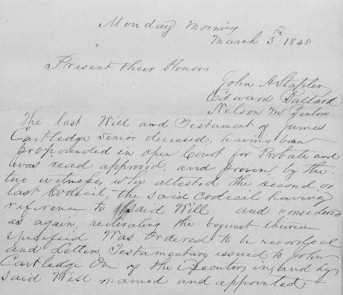 Monday Morning
March 5th 1848
Present their Honors
John A Stapler
Edward Ballard
Nelson M
The last Will and Testament of James
Cartledge Senior deceased, having been
propounded in open Court for Probate and
was read approved, and proven by the
two witnesses who attested the second or
last Codicil, the said Codicil having
reference to said Will and
as again, reiterating the bequest therein
specified Was ordered to be recorded
and letters Testamentary issued to John
Cartledge One of the Executors in and by
said Will named and appointed